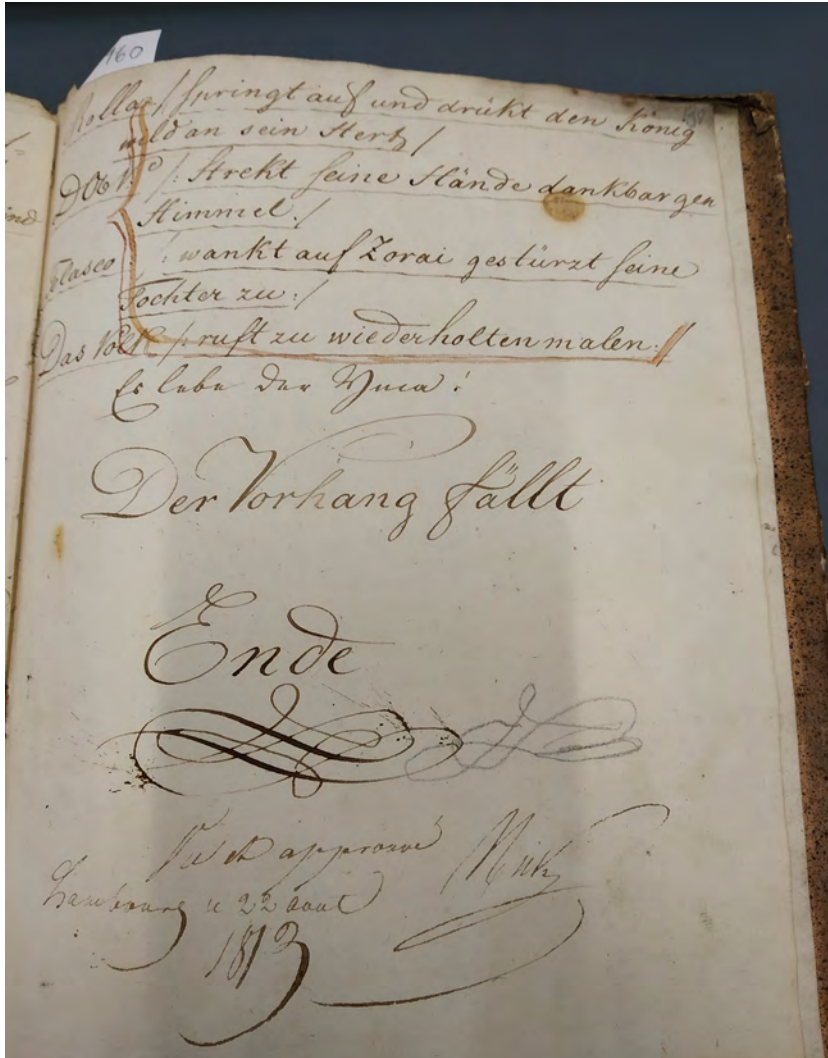 160
Rolla /: springt auf und drükt den König
wild an sein Hertz /
/: Strekt seine Hände dankbar gen
Himmel :/
/: wankt auf Zorai gestürzt seine
Tochter zu :/
Das Volk /: ruft zu wiederholten malen :/
Es lebe der Ynca!
Der Vorhang fällt
Ende
Vu et approuvé
hambourg le 22 aout
1813